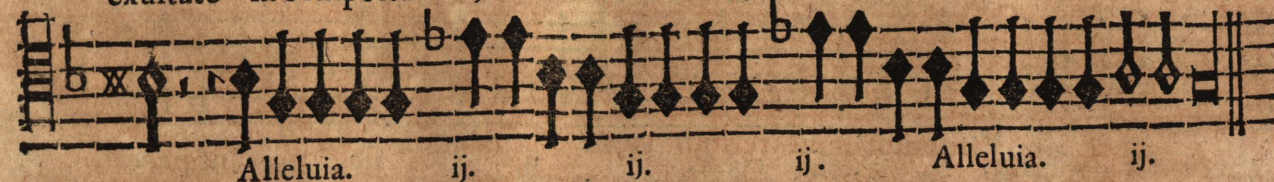 Alleluia. ij. ij. ij. Alleluia. ij.